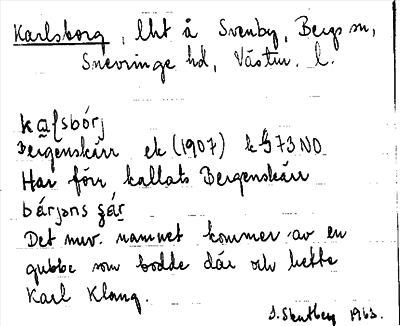 Karlsborg, lht å Svenby, Bergs sn,
Snevringe hd, Västm. l.
ka̲ɭsbórj
Bergenskärr ek (1907) k § 73 NO
Har förr kallats Bergenskärr
bárjəns çár̲
Det nuv. namnet kommer av en
gubbe som bodde där och hette
Karl Klang.
1963.